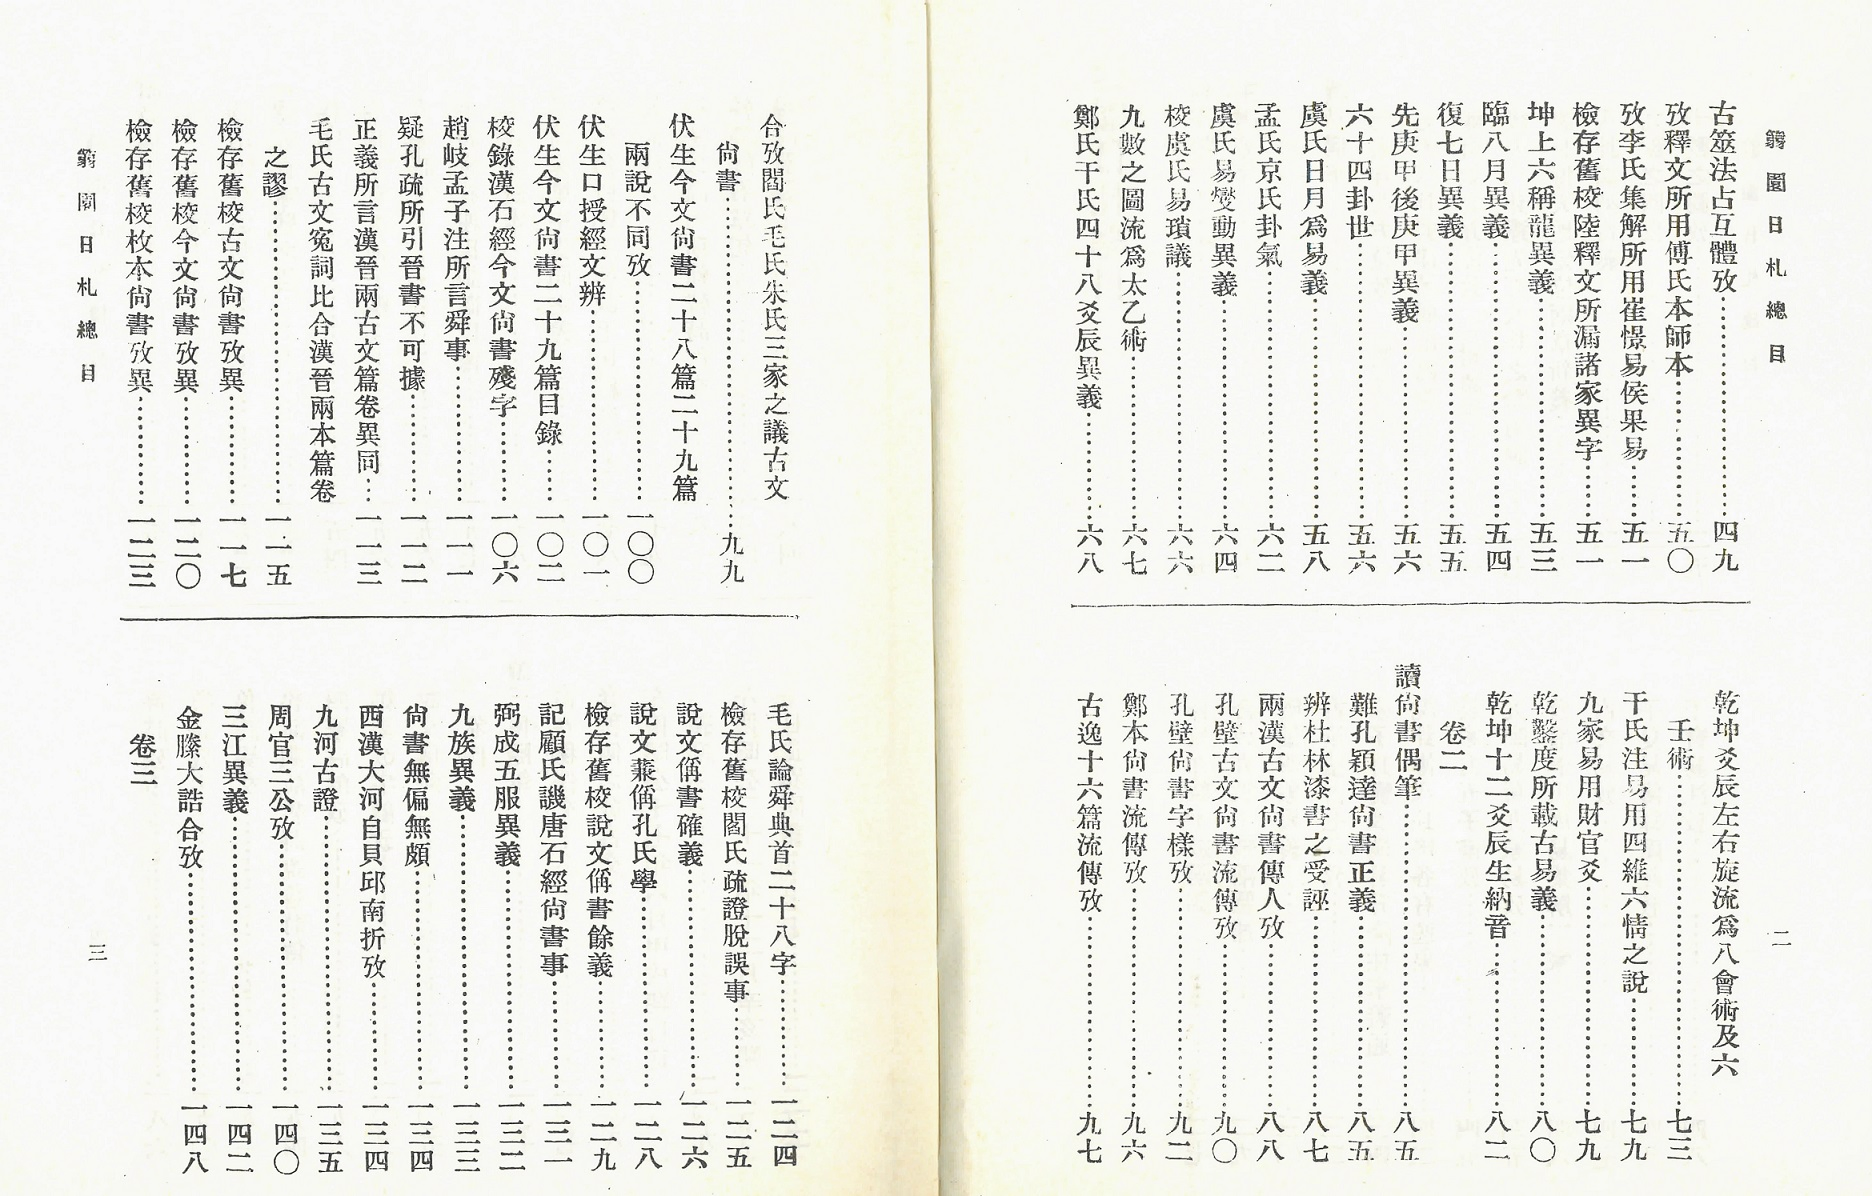 翳園日札總目
二
古筮法占互體攷…………四九
攷釋文所用傅氏本師本…………五〇
攷李氏集解所用崔憬易侯果易…………五一
檢存舊校陸釋文所漏諸家異字…………五一
坤上六稱龍異義…………五三
臨八月異義…………五四
復七日異義…………五五
先庚甲後庚甲異義…………五六
六十四卦世…………五六
虞氏日月爲易義…………五八
孟氏京氏卦氣…………六二
虞氏易變動異義…………六四
校虞氏易瑣議…………六六
九數之圖流爲太乙術…………六七
鄭氏干氏四十八爻辰異義…………六八
乾坤爻辰左右旋流爲八會術及六
壬術…………七三
干氏注易用四維六情之說…………七九
九家易用財官爻…………七九
乾鑿度所載古易義…………八〇
乾坤十二爻辰生納音…………八二
卷二
讀尙書偶筆…………八五
難孔穎達尙書正義…………八五
辨杜林漆書之受誣…………八七
兩漢古文尙書傳人攷…………八八
孔壁古文尙書流傳攷…………九〇
孔壁尙書字樣攷…………九二
鄭本尙書流傳攷…………九六
古逸十六篇流傳攷…………九七
合攷閻氏毛氏朱氏三家之議古文
尙書…………九九
伏生今文尙書二十八篇二十九篇
兩說不同攷…………一〇〇
伏生口授經文辨…………一〇一
伏生今文尙書二十九篇目錄…………一〇二
校錄漢石經今文尙書殘字…………一〇六
趙岐孟子注所言舜事…………一一一
疑孔疏所引晉書不可據…………一一二
正義所言漢晉兩古文篇卷異同…一一三
毛氏古文寃詞比合漢晉兩本篇卷
之謬…………一一五
檢存舊校古文尙書攷異…………一一七
檢存舊校今文尙書攷異…………一二〇
檢存舊校枚本尙書攷異…………一二三
毛氏論舜典首二十八字…………一二四
檢存舊校閻氏疏證脫誤事…………一二五
說文偁書確義…………一二六
說文蒹偁孔氏學…………一二八
檢存舊校說文偁書餘義…………一二九
記顧氏譏唐石經尙書事…………一三一
弼成五服異義…………一三二
九族異義…………一三三
尙書無偏無頗…………一三四
西漢大河自貝邱南折攷…………一三四
九河古證…………一三五
周官三公攷…………一四〇
三江異義…………一四二
金縢大誥合攷…………一四八
卷三
翳園日札總目
三